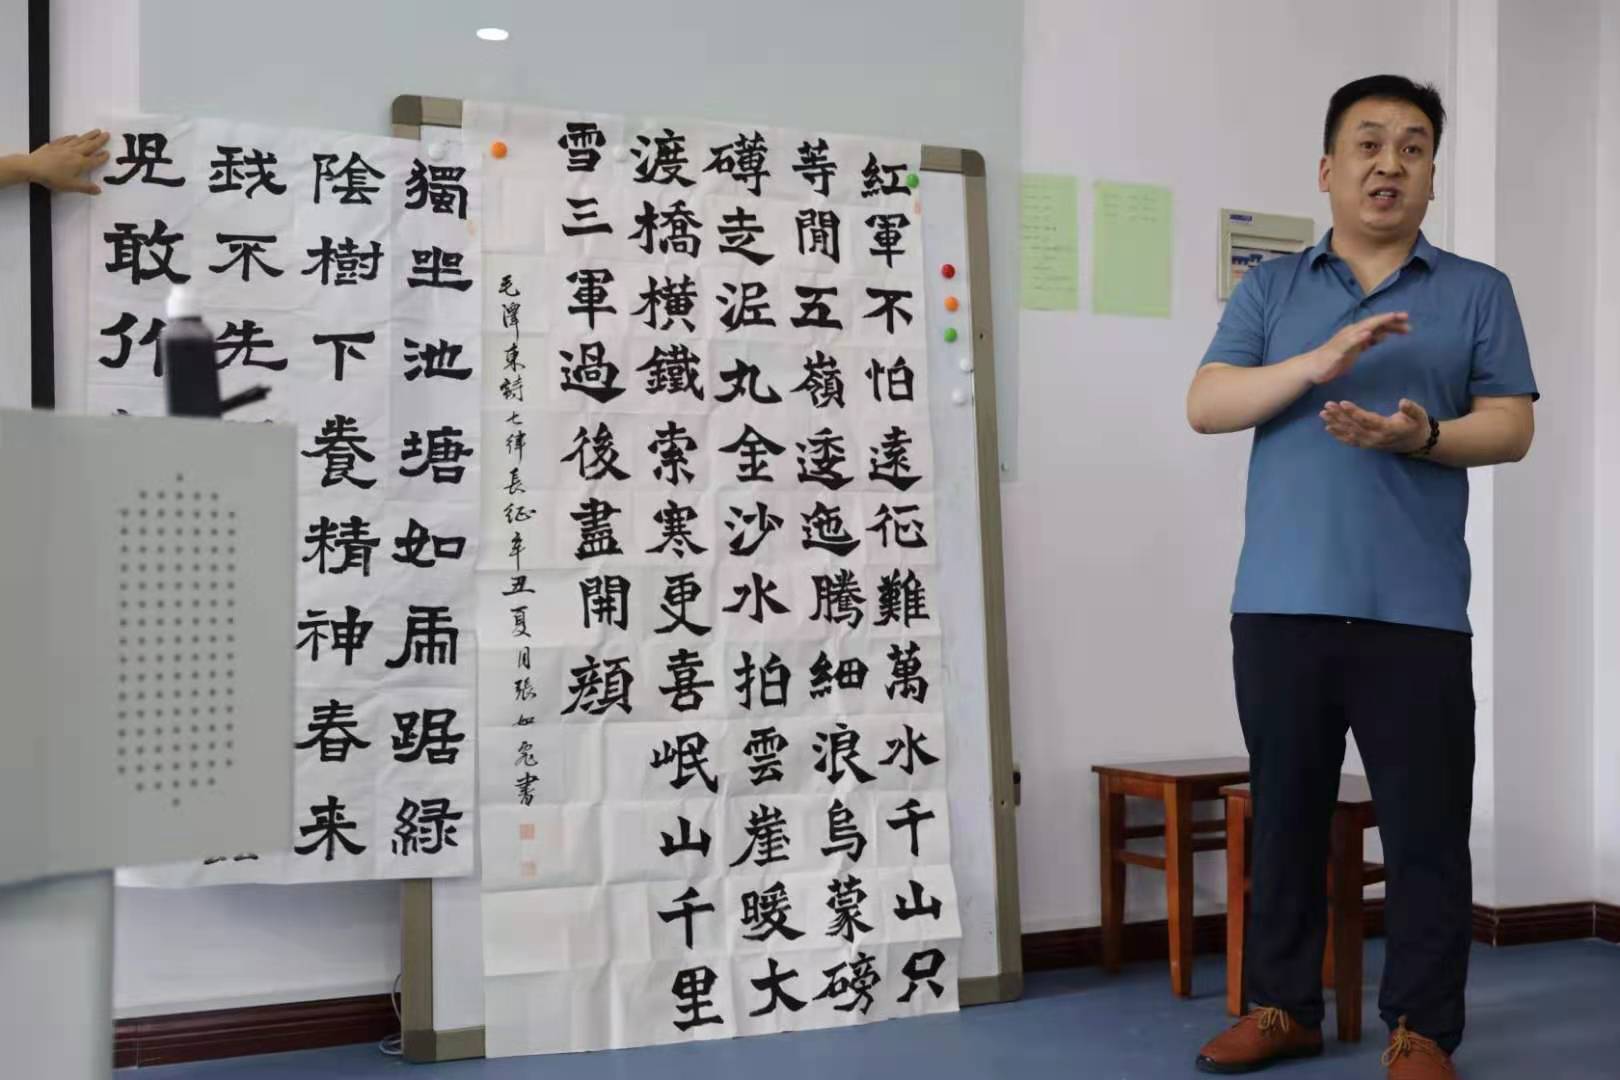 紅軍不怕遠征難萬水千山只
等閒五嶺逶迤騰細浪烏蒙磅
礴走泥丸金沙水拍雲崖暖大
渡橋橫鐵索寒更喜岷山千里
雪三軍過後盡開顏
毛澤東詩七律長征辛丑夏月張如書
獨坐池塘如虎踞綠
陰樹下養精神春来
我不先
兒敢作